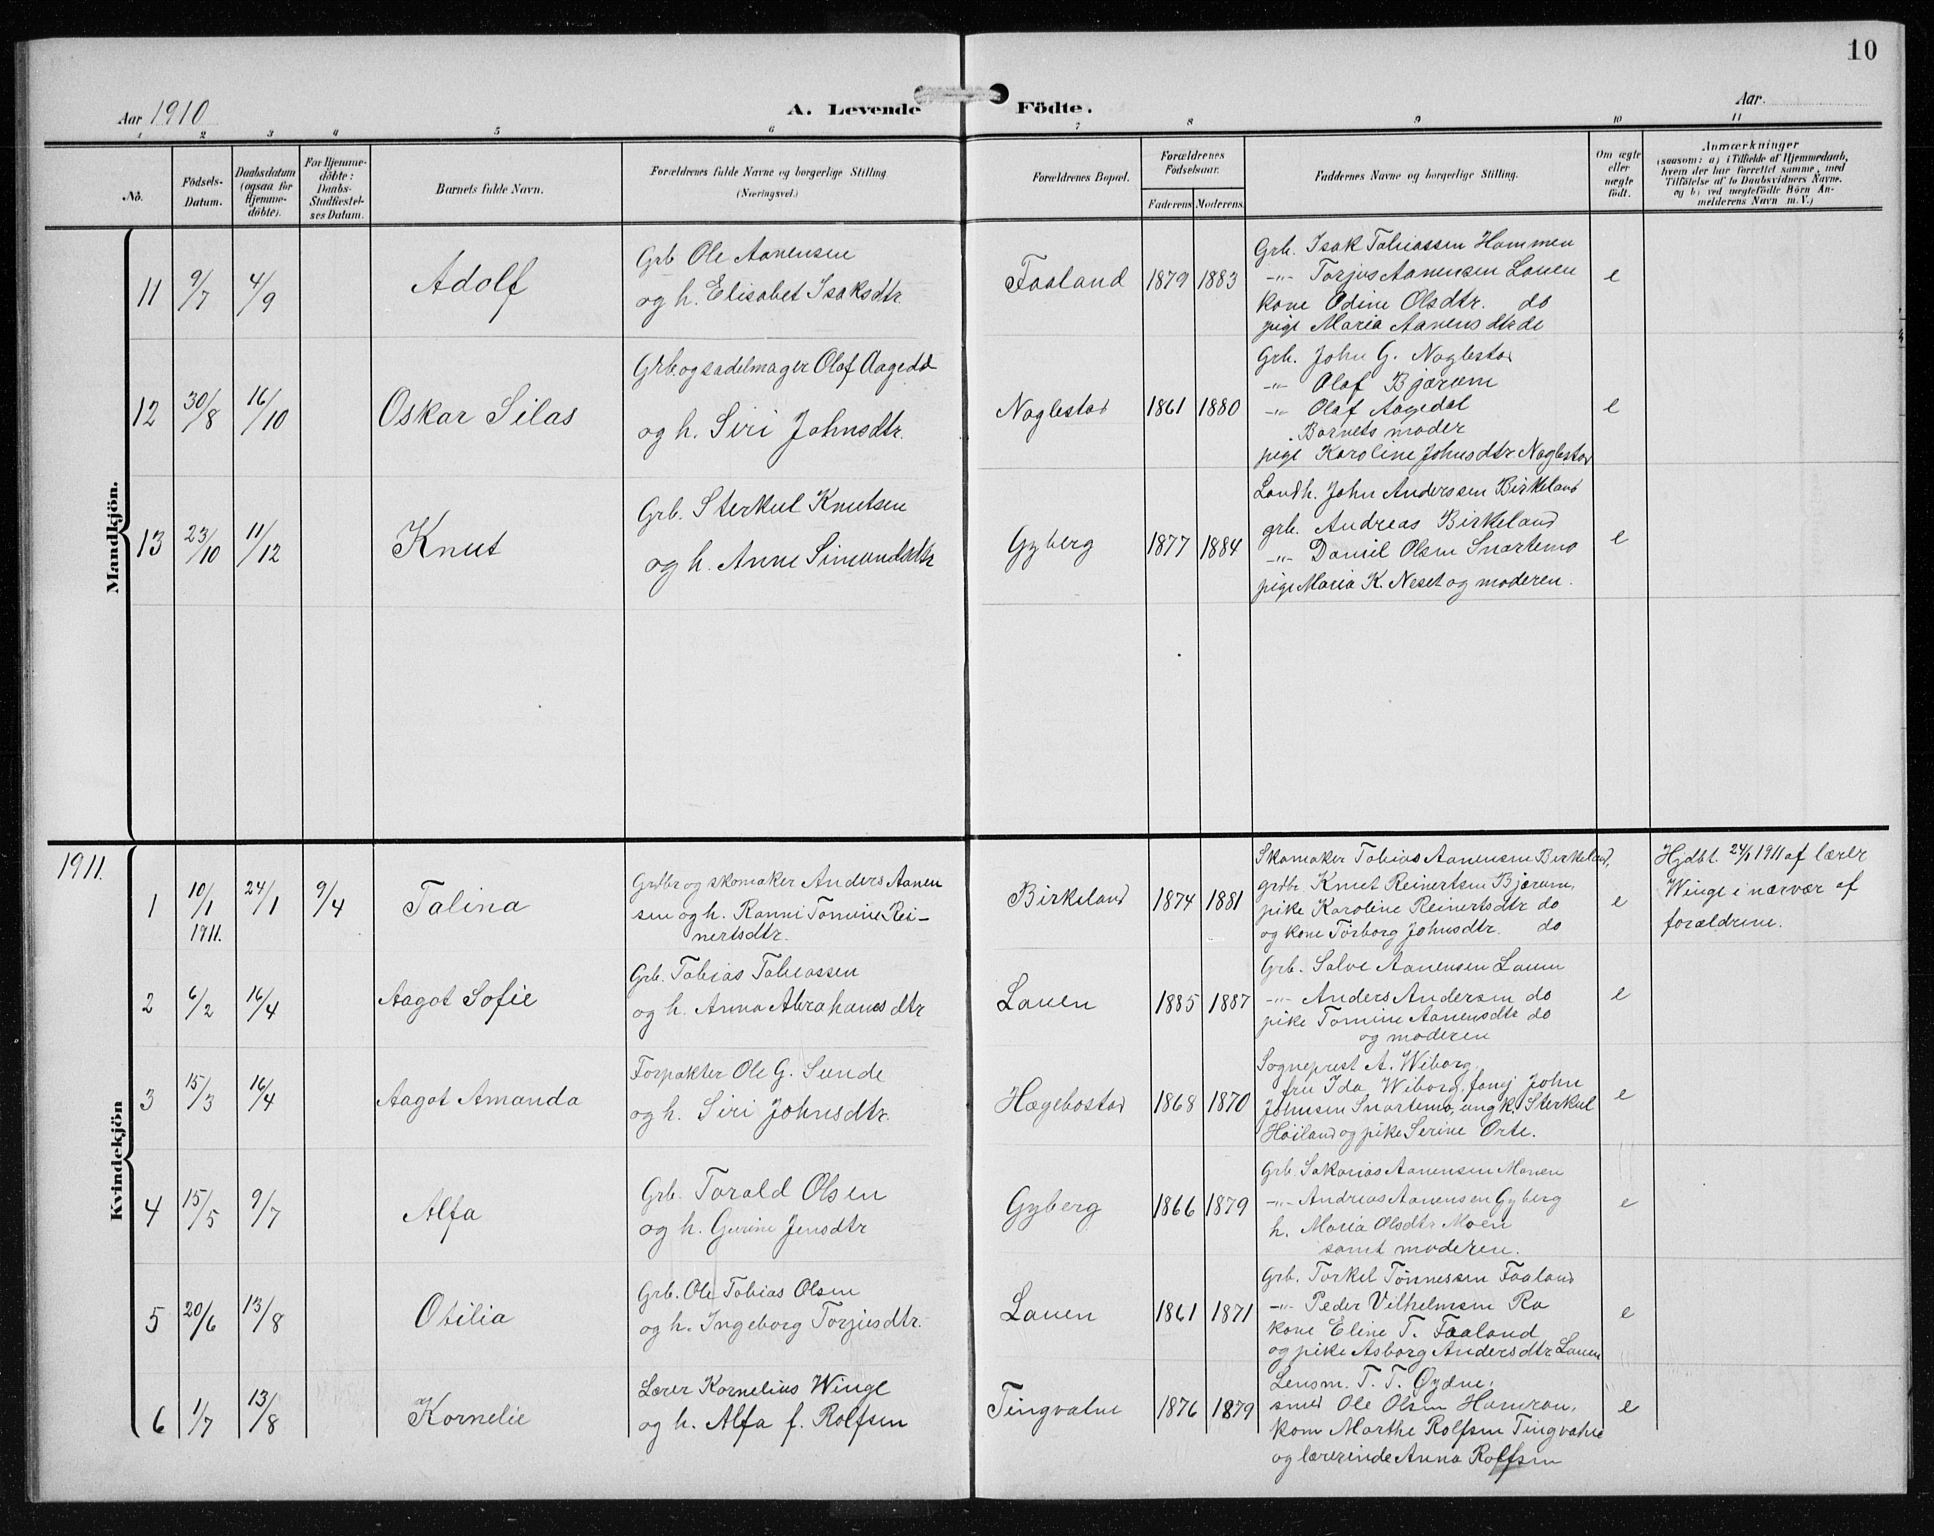 10
Aar 1910
A. Levende Födte.
Aar.
1 2 3 4 5 6 7 8 9 10 11
No.
Födsels-
Datum.
Daabsdatum
(ogsaa for
Hjemme-
döbte).
For Hjemme-
döbte:
Daabs-
Stadfæstel-
ses Datum.
Barnets fulde Navn.
Forældrenes fulde Navne og borgerlige Stilling
(Næringsvei.)
Forældrenes Bopæl.
Forældrenes
Födselsaar.
Faderens Moderens.
Faddernes Navne og borgerlige Stilling.
Om ægte
eller
uægte
födt.
Anmærkninger
(saasom: a) i Tilfælde af Hjemmedaab,
hvem der har forrettet samme, med
Tilföielse af to Daabsvidners Navne.
og b) ved uægtefödte Börn An-
melderens Navn m. V.)
Mandkjön.
11 9/7 4/9 Adolf
Grb Ole Aanensen
og h. Elisabet Isaksdtr.
Faaland 1879 1883
Grb. Isak Tobiassen Hommen
-"- Torjus Aanensen Lauen
kone Odine Olsdtr. do
pige Maria Aanensdtr do
e
12 30/8 16/10 Oskar Silas
Grb og sadelmager Olaf Aagedal
og h. Siri Johnsdtr.
Naglestad 1861 1880
Grb. John G. Naglestad
-"- Olaf Bjærum
-"- Olaf Aagedal
Barnets moder
pige Karoline Johnsdtr Naglestad
e
13 23/10 11/12 Knut
Grb. Sterkul Knutsen
og h. Anne Simundsdtr
Gyberg 1877 1884
Landh. John Anderssen Birkeland
grb. Andreas Birkeland
-"- Daniel Olsen Snartemo
pige Maria K. Neset og moderen.
e
1911.
Kvindekjön
1 10/1 1911. 24/1 9/4 Talina
Grdbr og skomaker Anders Aanen
sen og h. Ranni Tomine Rei-
nertsdtr.
Birkeland 1874 1881
Skomaker Tobias Aanensen Birkeland,
grdbr. Knut Reinertsen Bjærum,
pike Karoline Reinertsdtr do
og kone Torborg Johnsdtr. do
e
Hjdbt. 24/1 1911 af lærer
Winge i nærvær af
forældrene.
2 6/2 16/4 Aagot Sofie
Grb. Tobias Tobiassen
og h. Anna Abrahamsdtr
Lauen 1885 1887
Grb. Salve Aanensen Lauen
-"- Anders Andersen do
pike Tomine Aanensdtr do
og moderen
e
3 15/3 16/4 Aagot Amanda
Forpakter Ole G. Sunde
og h. Siri Johnsdtr.
Hægebostad 1868 1870
Sogneprest A. Wiborg,
fru Ida Wiborg, fanej John
Johnsen Snartemo, ungk. Sterkul
Høiland og pike Serine Orte.
e
4 15/5 9/7 Alfa
Grb. Torald Olsen
og h. Gurine Jensdtr
Gyberg 1866 1879
Grb Sakarias Aanensen Monen
-"- Andreas Aanensen Gyberg
h. Maria Olsdtr Moen
samt moderen.
e
5 20/6 13/8 Otilia
Grb. Ole Tobias Olsen
og h. Ingeborg Torjusdtr.
Lauen 1861 1871
Grb. Torkel Tønnessen Faaland
-"- Peder Vilhelmsen Ro
kone Eline T. Faaland
og pike Asborg Andersdtr Lauen
e
6 1/7 13/8 Kornelie
Lærer Kornelius Winge
og h. Alfa f. Rolfsen
Tingvatne 1876 1879
Lensm. T. T. Øydne,
smed Ole Olsen Hamran,
kone Marthe Rolfsen Tingvatne
og lærerinde Anna Rolfsen
e